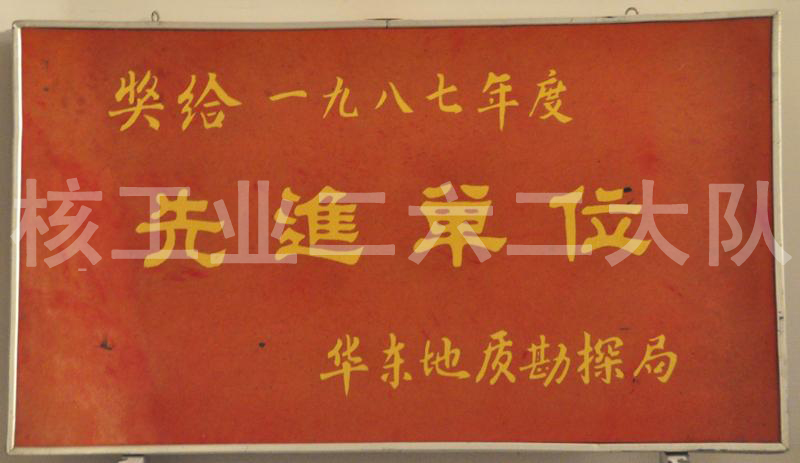 奖给一九八七年度
先進单位
核工业二六二大队
华东地质勘探局